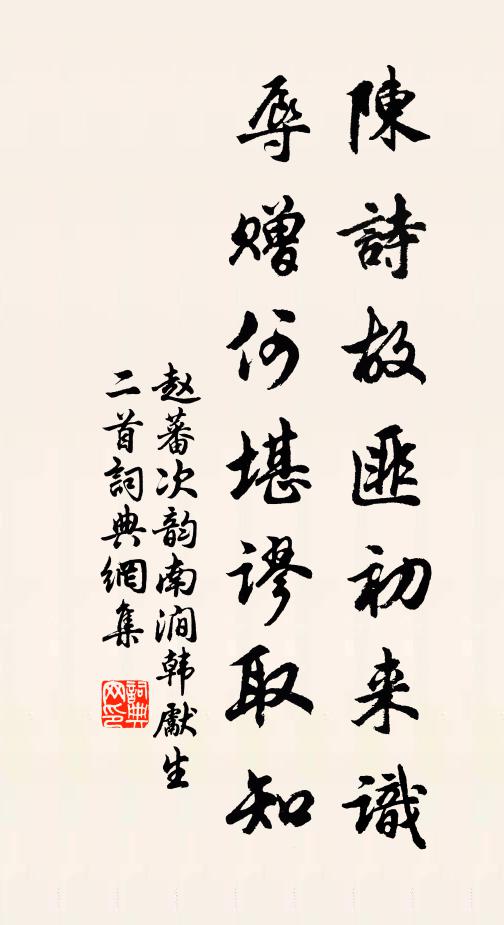 陳詩故匪初来識
辱贈何堪謬取知
赵蕃次韵南澗韩獻生
二首詞典網集
詞典网印